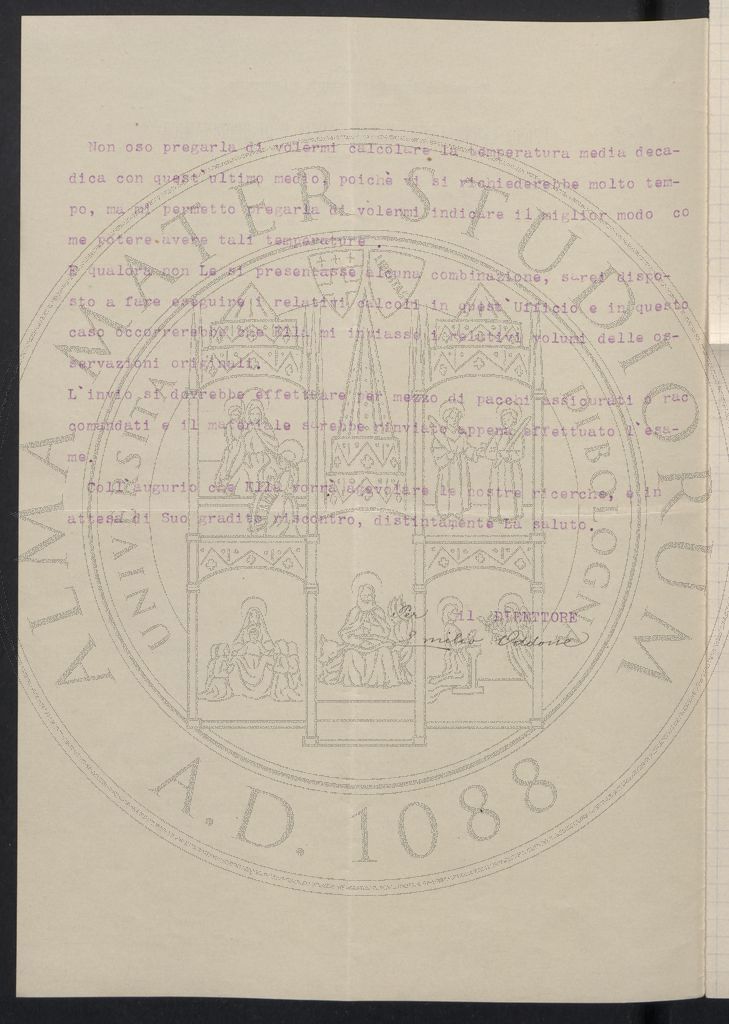 Non oso pregarla di volermi calcolare la temperatura media deca-
dica con quest'ultimo medio, poichè vi si richiederebbe molto tem-
po, ma mi permetto pregarla di volermi indicare il miglior modo co
me potere avere tali temperature .
E qualora non Le si presentasse alcuna combinazione, sarei dispo-
sto a fare eseguire i relativi calcoli in quest'Ufficio e in questo
caso occorrerebbe che Ella mi inviasse i relativi volumi delle os-
servazioni originali.
L'invio si dovrebbe effettuare per mezzo di pacchi assicurati o rac
comandati e il materiale sarebbe rinviato appena effettuato l'esa-
me.
Coll'augurio che Ella vorrà agevolare le nostre ricerche, e in
attesa di Suo gradito riscontro, distintamente La saluto.
Per il DIRETTORE
Emilio Oddone
ALMA MATER STUDIORUM
UNIVERSITÀ DI BOLOGNA
LIBERTAS
A.D. 1088